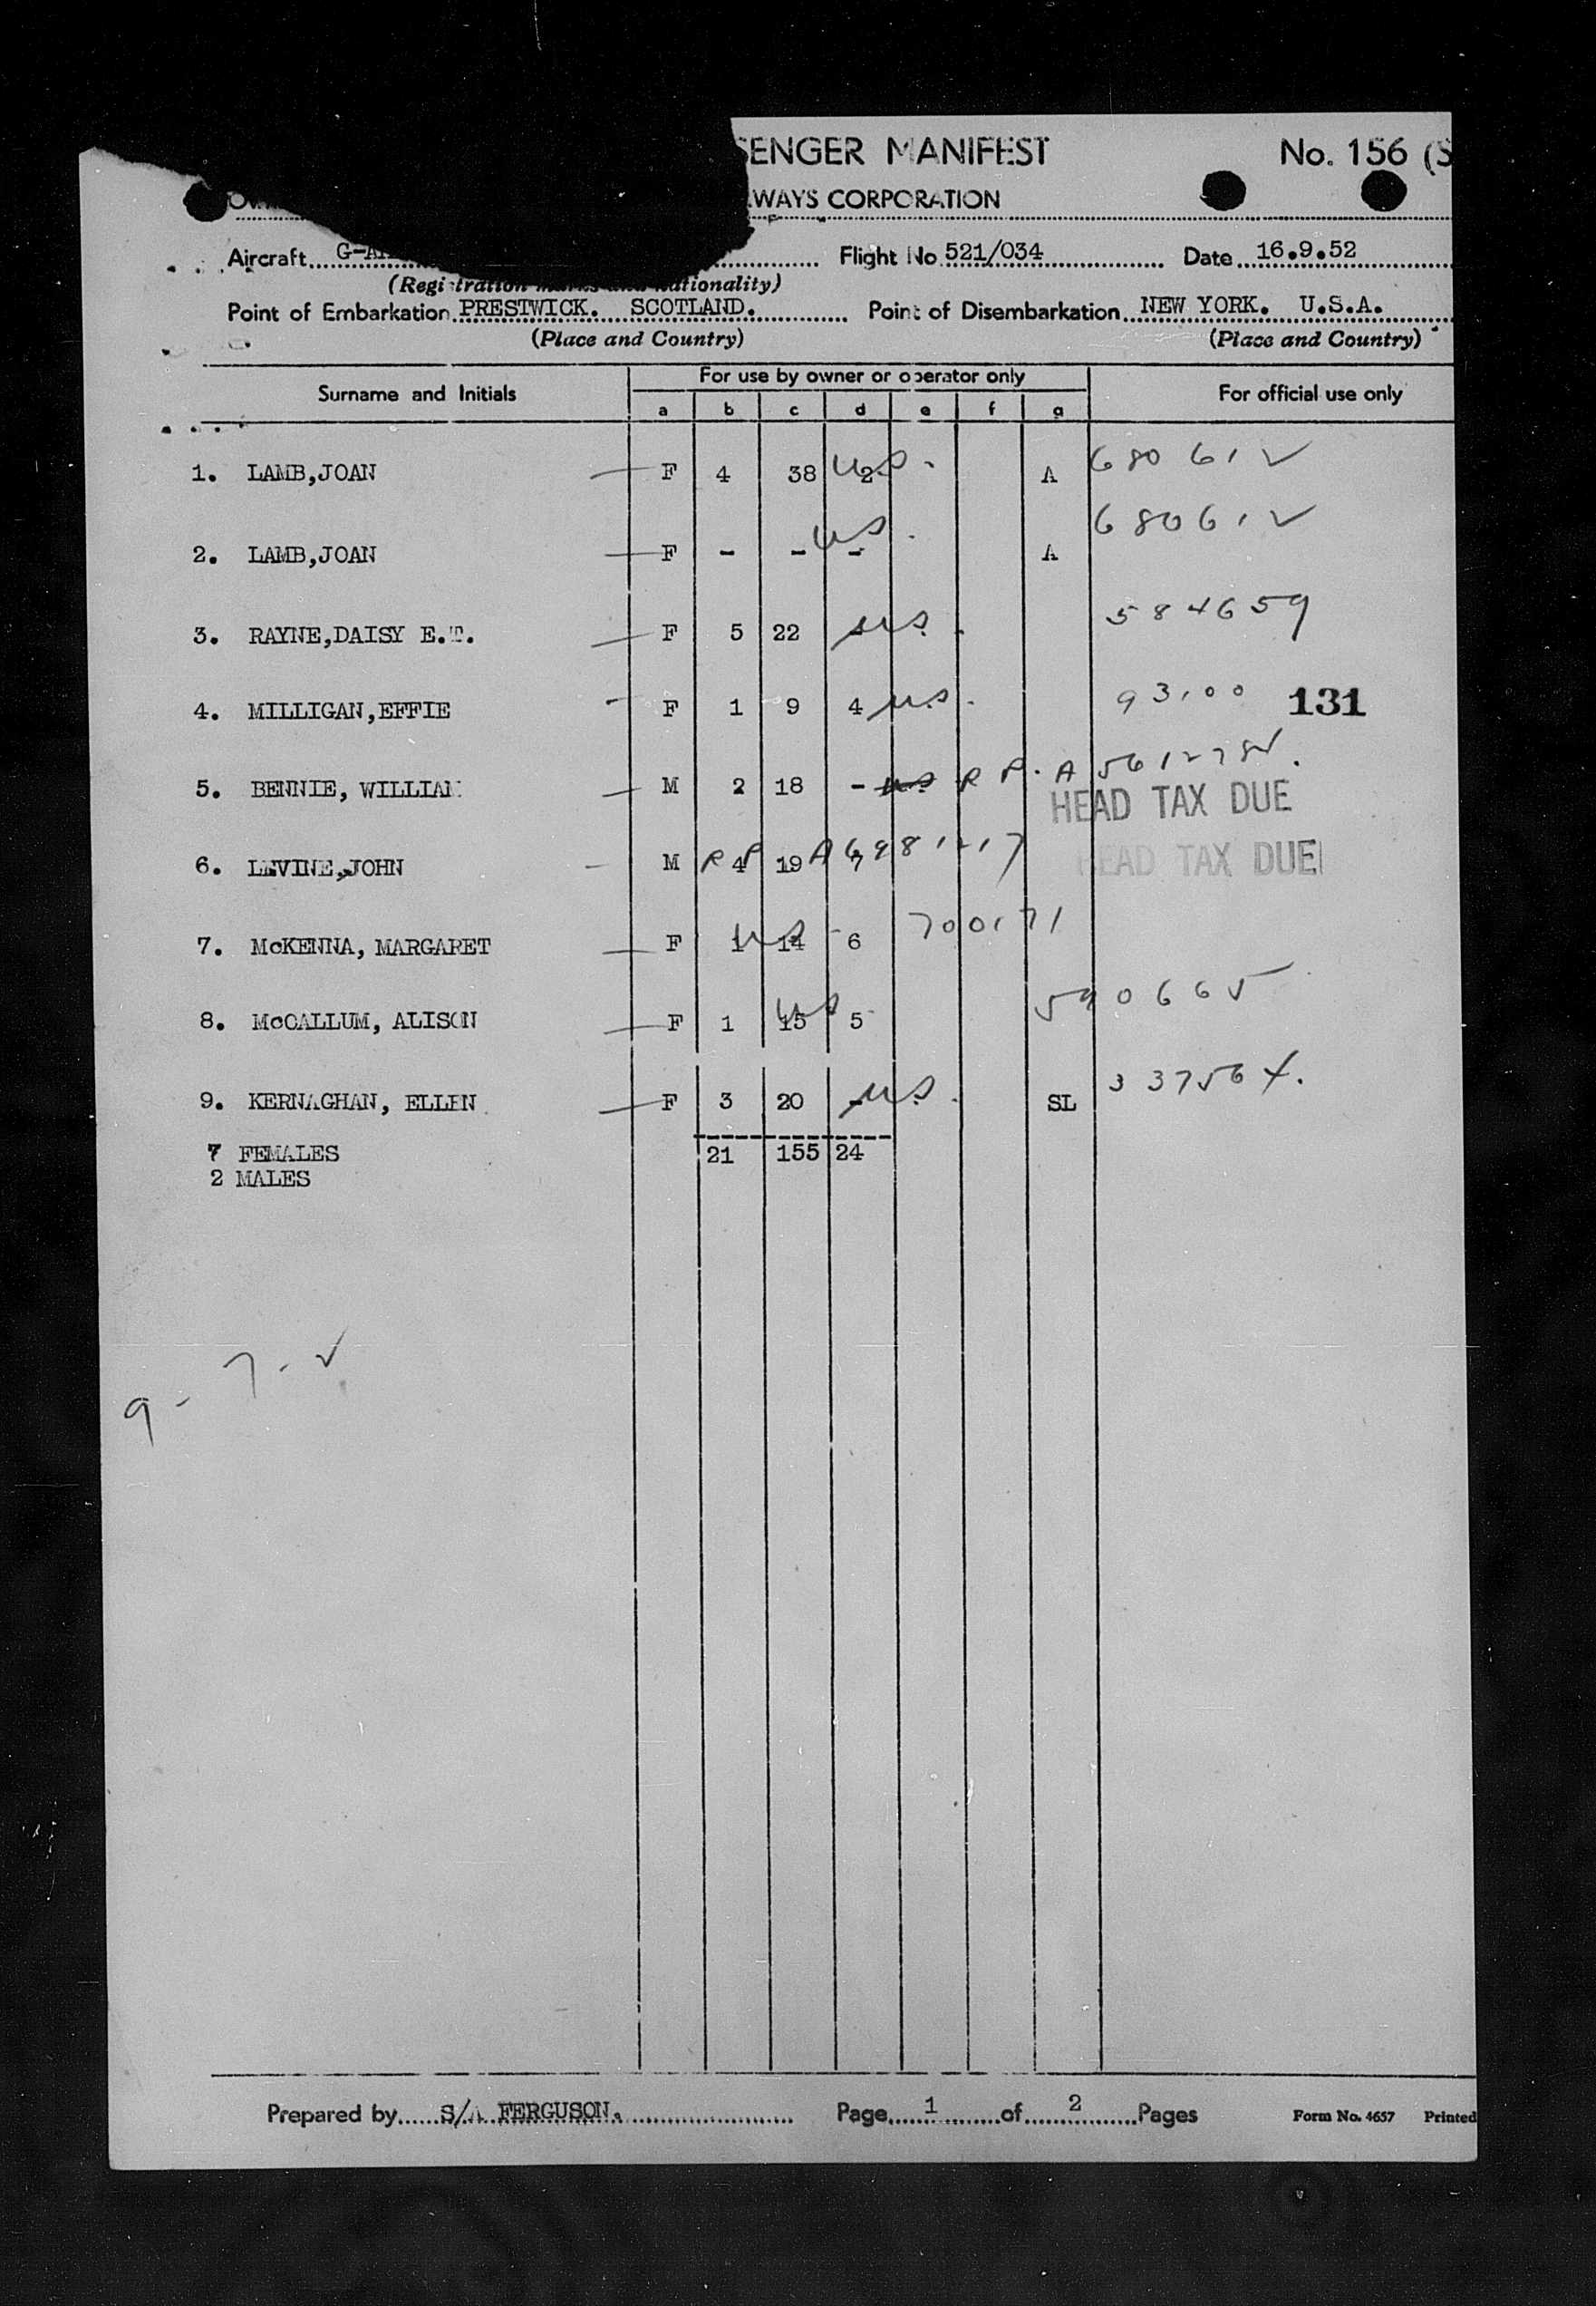 SENGER MANIFEST No. 156 (S
WAYS CORPORATION
Aircraft G-A Flight No 521/034 Date 16.9.52
(Registration marks and nationality)
Point of Embarkation PRESTWICK. SCOTLAND. Point of Disembarkation NEW YORK. U.S.A.
(Place and Country) (Place and Country)
Surname and Initials For use by owner or operator only For official use only
a b c d e f g
1. LAMB,JOAN F 4 38 2 US. A 68061 ✓
2. LAMB,JOAN F - - - US. A 68061 ✓
3. RAYNE,DAISY E.T. F 5 22 - US. 584659
4. MILLIGAN,EFFIE F 1 9 4 US. 93100 131
5. BENNIE, WILLIAM M 2 18 - US RP. A
HEAD TAX DUE
6. LEVINE,JOHN M 4 19 7 RP A6981217 HEAD TAX DUE
7. McKENNA, MARGARET F 1 14 6 US 700171
8. McCALLUM, ALISON F 1 15 5 US 590665
9. KERNAGHAN, ELLEN F 3 20 - US. SL 33756
7 FEMALES 21 155 24
2 MALES
9 - 7 - ✓
Prepared by S/A FERGUSON. Page 1 of 2 Pages Form No. 4657 Printed